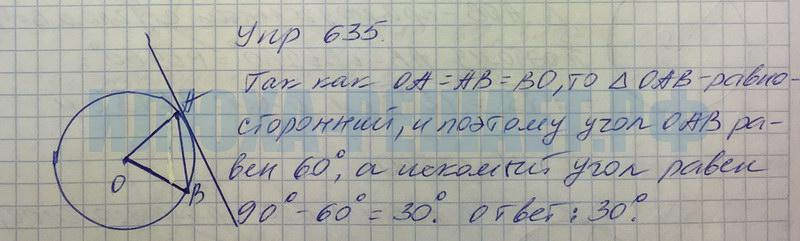 Упр 635.
Так как OA = AB = BO, то △ OAB - равно-
сторонний, и поэтому угол OAB ра-
вен 60°, а искомый угол равен
90° - 60° = 30°. Ответ: 30°.
A
O
B
ИЛЮХА-РЕШАЕТ.РФ